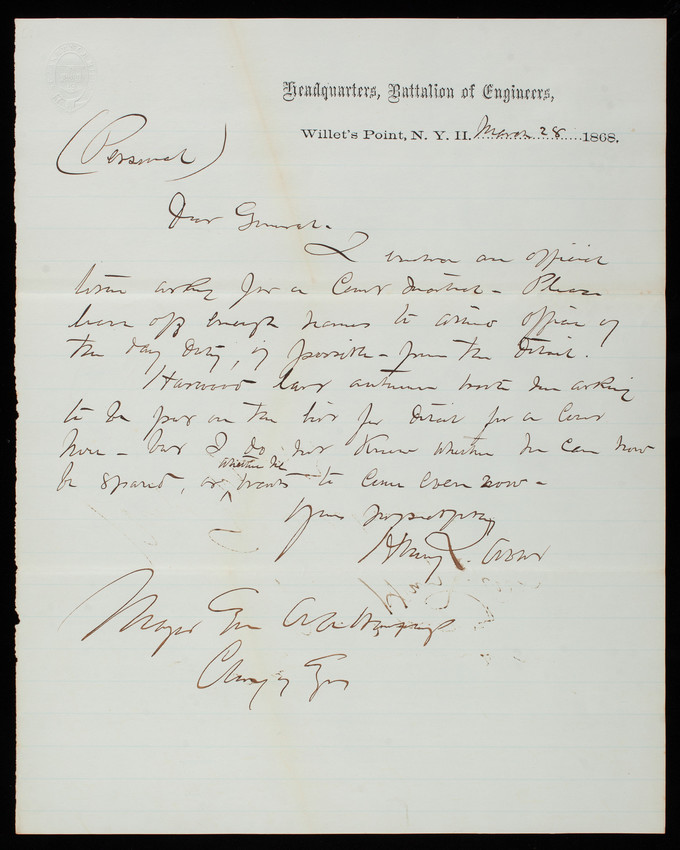 Headquarters, Battalion of Engineers,
Willet's Point, N. Y. H. March 28 1868.
(Personal)
Dear General -
I enclose an official
letter asking for a Court Martial - Please
leave off enough names to asking officer of
the day duty, if possible - from the Detail.
Harwood last autumn wrote me asking
to be put on the list for detail for a Court
here - but I do not know whether he can now
be spared, or whether he wants to come even now -
Yours respectfully
Henry L. Abbot
Major Gen A A Humphreys
Chief of Engrs